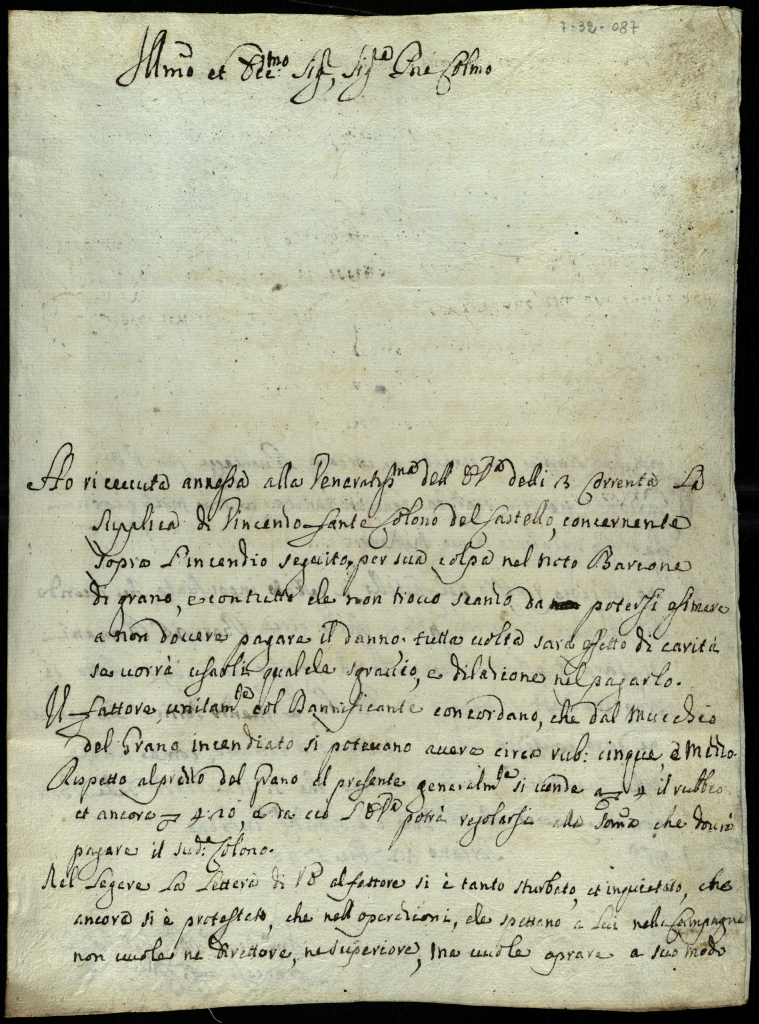 7-32-087
Illmo et Ecc.mo Sig.r Sig.r Pne Colmo
Ho riceuuta annessa alla Veneratiss.ma dell' E V.ra delli 3 Corrente La
Supplica di Vincenzo Sante Colono del Castello, concernente
sopra L'incendio seguito per sua colpa nel noto Barcone
di grano, e con tutto che non trouo scanzo da potersi esimere
a non douere pagare il danno, tutta uolta sarà effetto di carità
se uorrà usarli qualche sgrauio, e dilazione nel pagarlo.
Il Fattore, unitam.te col Bannificante concordano, che dal Mucchio
del Grano incendiato si poteuano auere circa rub: cinque, e mezzo.
Rispetto al prezzo del Grano al presente generalm.te si uende a 4 il rubbio
et ancora 4:20, e da ciò L'E V.ra potrà regolarsi alla soma che dourà
pagare il sud.o Colono.
Nel Legere La Lettera di V E al fattore si è tanto sturbato, et inquietato, che
ancora si è protestato, che nell'operazioni, che spettano a Lui nella Campagna
non uuole ne direttore, ne superiore, ma uuole oprare a suo modo